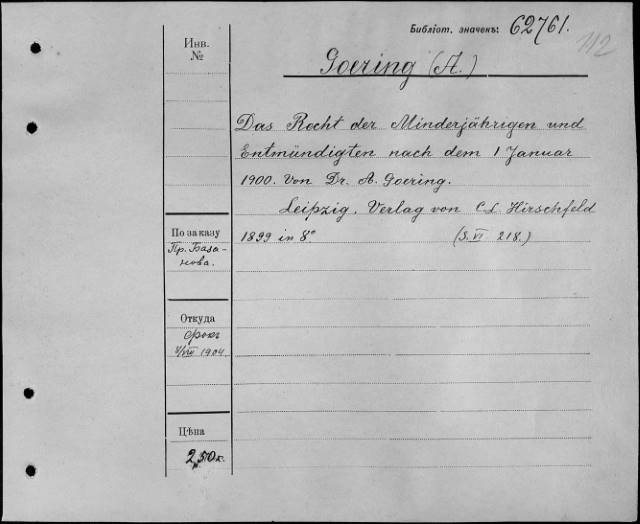 Библіот. значекъ: 62761.
112
Инв.
№
Goering (A.)
Das Recht der Minderjährigen und
Entmündigten nach dem 1 Januar
1900. Von Dr. A. Goering.
Leipzig. Verlag von C. L. Hirschfeld
1899 in 8° (S. VI 218.)
По заказу
Пр. База-
нова.
Откуда
1904
Цѣна
2,50 к.